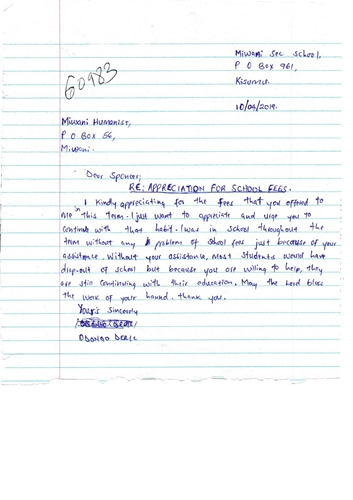 Miwani Sec School,
P O Box 961,
Kisumu.
10/04/2019.
60983
Miwani Humanist,
P O Box 56,
Miwani.
Dear Sponcer,
RE: APPRECIATION FOR SCHOOL FEES.
I Kindly appreciating for the fees that you offered to
me in this term. I just want to appreciate and urge you to
continue with that habit. I was in school throughout the
term without any problem of school fees just because of your
assistance. Without your assistance, most students would have
drop-out of school but because you are willing to help, they
are still continuing with their education. May the Lord bless
the work of your hand. Thank you.
Your's Sincerely
ODONGO